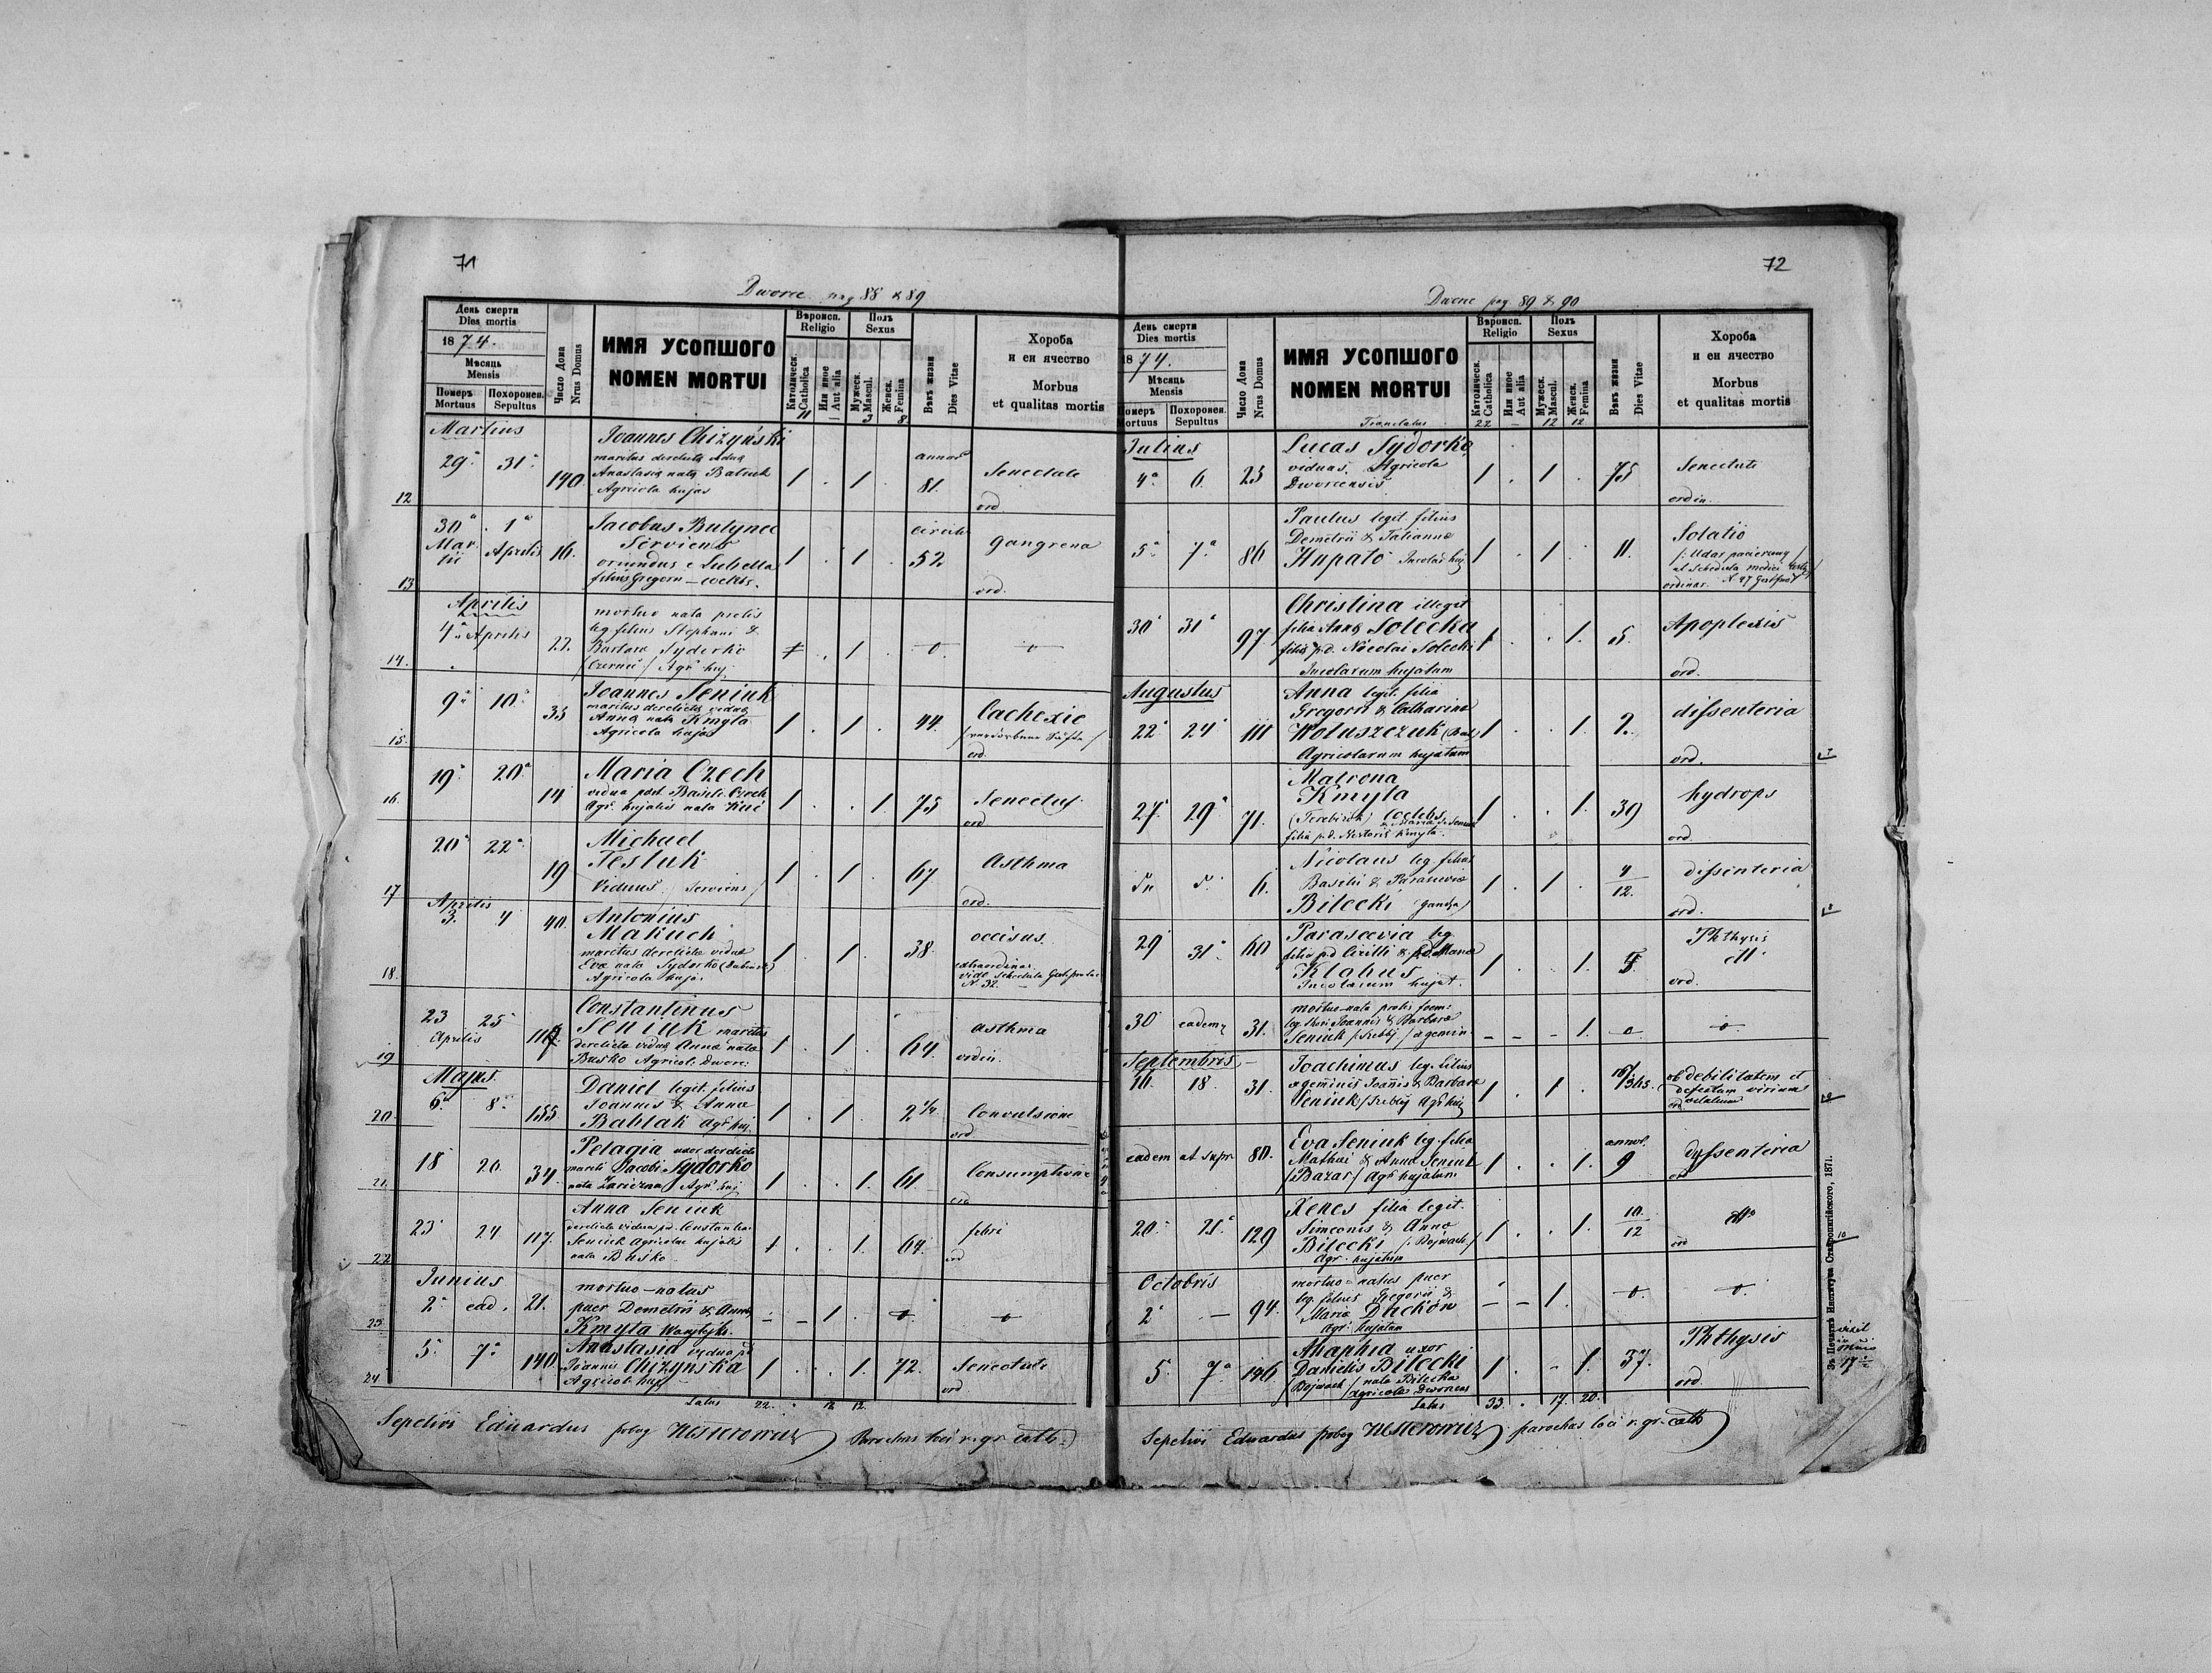 71
Dworce pag 88 & 89
День смерти
Dies mortis
1874.
Мѣсяць
Mensis
Померъ
Mortuus
Похоронен.
Sepultus
Число Дома
Nrus Domus
ИМЯ УСОПШОГО
NOMEN MORTUI
Вѣроисп.
Religio
Католическ.
Catholica
Или иное
Aut alia
Полъ
Sexus
Мужеск.
Mascul.
Женск.
Femina
Вѣкъ жизни
Dies Vitae
Хороба
и еи ячество
Morbus
et qualitas mortis
11 3 8
Martius
12 29 31 140
Joannes Chizyński
maritus derelictæ viduæ
Anastasiæ natæ Batiuk
Agricola hujas
1 . 1 .
annor
81.
Senectute
ord
13 30 Martii 1 Aprilis 16.
Jacobus Butynec
Serviens
oriundus e Lubella
filius Gregorii — coelebs.
1 . 1 .
circiter
52
gangrena
ord.
Aprilis
14. 4 Aprilis 22.
mortuo nata prolis
leg filius Stephani &
Barbaræ Sydorko
Agr. huj.
. 1 .
15. 9 10 35
Joannes Seniuk
maritus derelictæ viduæ
Annæ nata Kmyta
Agricola hujas
1 . 1 .
44.
Cachexie
ord.
16. 19 20 14
Maria Czech
vidua post Basili Czech
Agr. hujatis nata Kuć
1 . . 1
75
Senectus
ord
17 20 22 19
Michael
Testuk
Viduus / Serviens /
1 . 1 .
67
Asthma
ord.
Aprilis
18. 3. 4 40.
Antonius
Makuch
maritus derelictæ viduæ
Evæ nata Sydorko
Agricola hujas
1 . 1 .
38.
occisus
extraordinar.
vide Schedula
N. 32.
19 23 Aprilis 25 117
Constantinus
Seniuk maritus
derelictæ viduæ Annæ nata
Busko Agricol. Dwor:
1 . 1 .
64.
asthma
ordin.
Majus
20. 6. 8. 155
Daniel legit. filius
Joannis & Annæ
Bahlak Agr. huj.
1 . 1 .
2 1/4
Convulsione
ord
21. 18 20 34
Pelagia uxor derelicta
mariti Jacobi Sydorko
nata Zariczna / Agr. huj
1 . . 1.
61.
Consumptione
ord
22 23 24 117.
Anna Seniuk
derelicta vidua pd. Constantini
Seniuk Agricolæ hujatis
nata Busko
1 . . 1.
64.
febri
ord
Junius
23 2 ead. 21.
mortuo-natus
puer Demetrii & Annæ
Kmyta
- - 1 .
24 5. 7. 140.
Anastasia vidua pd
Joannis Chizynska
Agricol. huj
1 . . 1.
72.
Senectute
ord
Latus 22. . 12 12.
Sepelivi Eduardus pobog Nesterowicz Parochus loci r. gr. cath.
72
Dworce pag. 89 & 90
День смерти
Dies mortis
1874.
Мѣсяць
Mensis
Померъ
Mortuus
Похоронен.
Sepultus
Число Дома
Nrus Domus
ИМЯ УСОПШОГО
NOMEN MORTUI
Вѣроисп.
Religio
Католическ.
Catholica
Или иное
Aut alia
Полъ
Sexus
Мужеск.
Mascul.
Женск.
Femina
Вѣкъ жизни
Dies Vitae
Хороба
и еи ячество
Morbus
et qualitas mortis
Translatus 22 - 12 12
Julius
4. 6. 23
Lucas Sydorko
viduus. Agricola
Dworcensis
1 . 1 .
75
Senectute
ordin.
5. 7. 86
Paulus legit. filius
Demetrii & Tatiannæ
Hnpato Incolar huj
1 . 1 .
11.
Solatio
/: Udar
ut Schedula medici
ordinar. N 47
30 31 97
Christina illegit
filia Annæ Solecka
filiæ pd. Nicolai Solecki
Incolarum hujatum
1 . . 1.
5.
Apoplexis
ord.
Augustus
22 24 111
Anna legit. filia
Gregorii & Catharinæ
Wołuszczuk
Agricolarum hujatum
1 . . 1.
2.
dissenteria
ord.
27. 29 71.
Matrona
Kmyta
Coelebs
filia pd. Nestoris Kmyta.
1 . . 1.
39
hydrops
ord.
6.
Nicolaus leg. filius
Basilii & Parasceviæ
Bilecki
1 . 1 .
4/12.
dissenteria
ord.
29 31 60
Parascevia leg.
filia pd Cirilli & pd. Mariæ
Klahus
Incolarum hujat.
1 . . 1.
Phthysis
ord.
30 eadem 31.
mortuo-nata prolis foem:
leg. thori Joannis & Barbaræ
Seniuk / e gemin.
- - - 1.
Septembris
16. 18. 31.
Joachimus leg. filius
e geminis Joannis & Barbaræ
Seniuk Agr huj
1 . 1 .
16/365.
ob debilitatem et
defectum virium
vitalium
ord
eadem ut supr 80.
Eva Seniuk leg. filia
Mathæi & Annæ Seniuk
/ Bazar / Agr hujatum
1 . . 1.
annor.
9
dyssenteria
ord
20. 21. 129
Xenes filia legit.
Simeonis & Annæ
Bilecki
Agr. hujatum
1 . . 1.
10/12
dto
ord
Octobris
2 — 94.
mortuo-natus puer
leg. filius Gregorii &
Mariæ Duckon
agr. hujatum
- - 1.
5. 7. 146
Ahaphia uxor
Danielis Bilecki
nata Bilecka
agricolæ Dworcens
1 . - 1.
37.
Phthysis
ord.
Latus 33. . 17. 20.
Sepelivi Eduardus pobog Nesterowicz parochus loci r. gr. cath
Зъ Печатнѣ Института Ставропигійского, 1871.